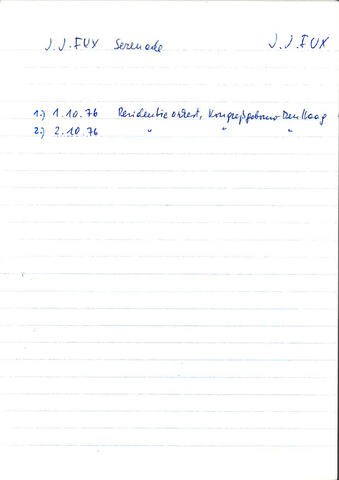 J.J.FUX Serenade J.J.FUX
1.) 1.10.76 Residentie orkest, Kongreßgebouw Den Haag
2.) 2.10.76 " " "